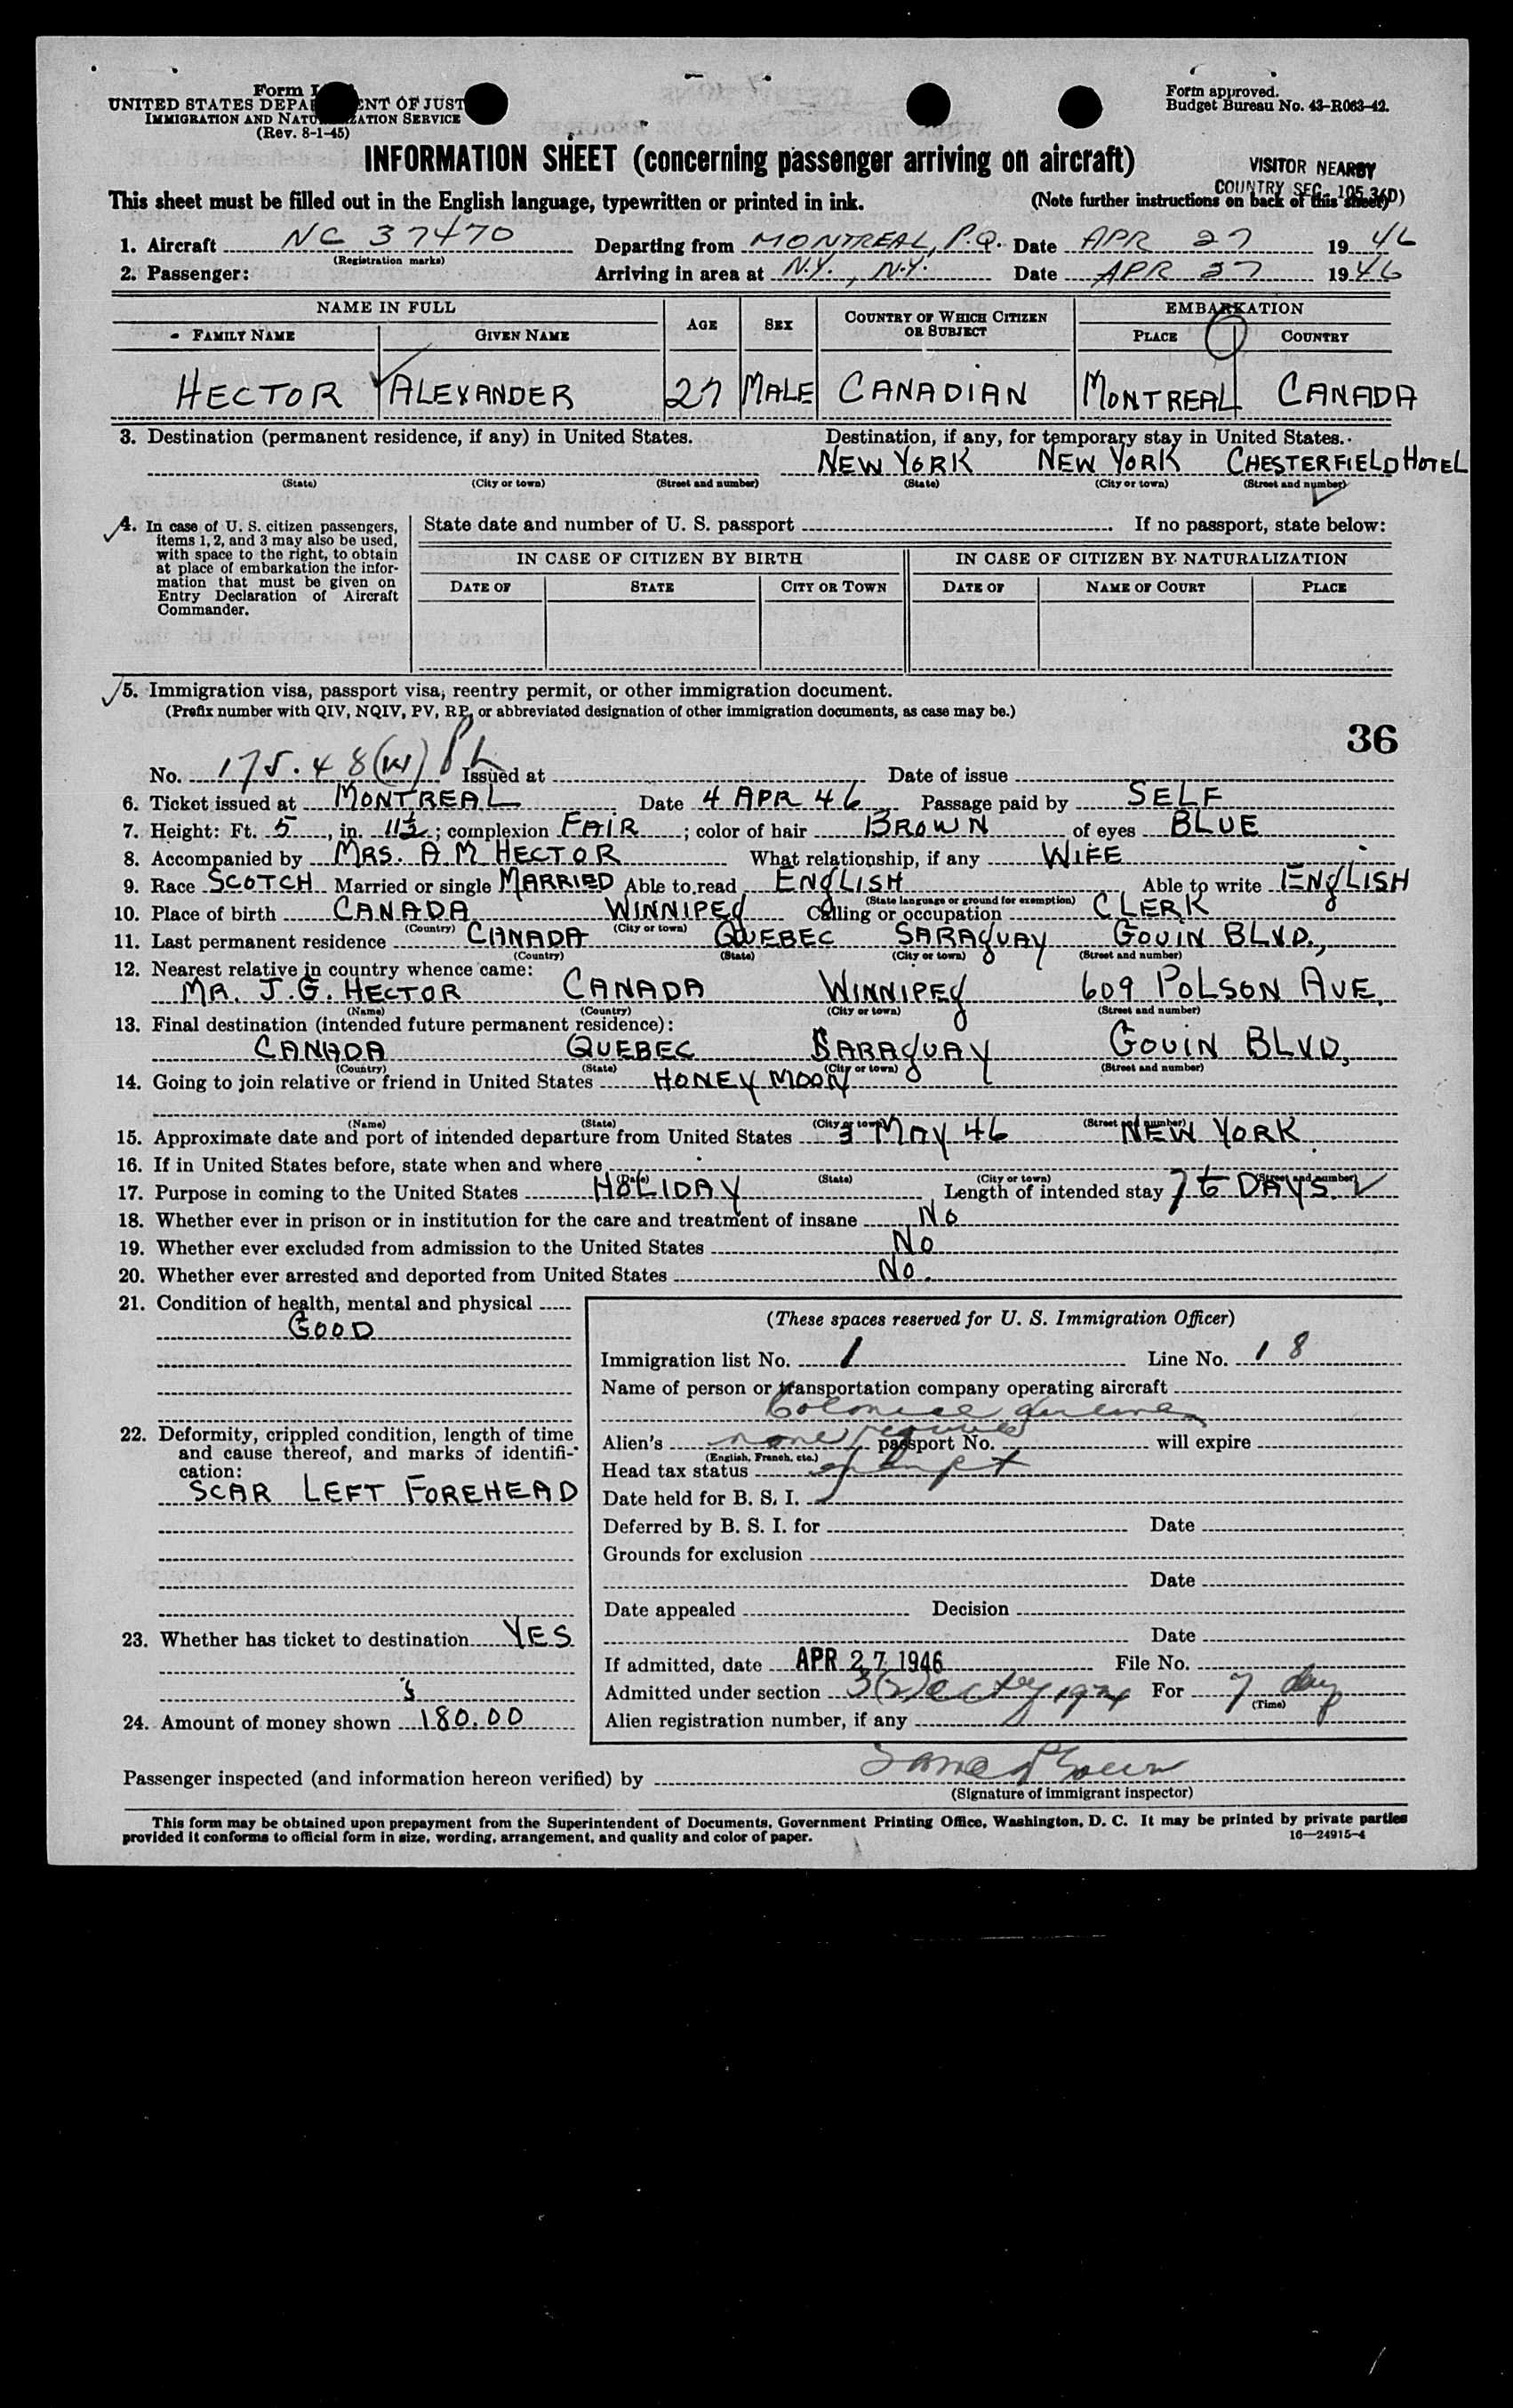 Form I
UNITED STATES DEPA ENT OF JUST
IMMIGRATION AND NATU ZATION SERVICE
(Rev. 8-1-45)
Form approved.
Budget Bureau No. 43-R063-42.
INFORMATION SHEET (concerning passenger arriving on aircraft)
VISITOR NEARBY
COUNTRY SEC. 105.3(D)
This sheet must be filled out in the English language, typewritten or printed in ink. (Note further instructions on back of this sheet)
1. Aircraft NC 37470 Departing from MONTREAL, P.Q. Date APR 27 1946
(Registration marks)
2. Passenger: Arriving in area at N.Y., N.Y. Date APR 27 1946
NAME IN FULL AGE SEX COUNTRY OF WHICH CITIZEN OR SUBJECT EMBARKATION
FAMILY NAME GIVEN NAME PLACE COUNTRY
HECTOR ALEXANDER 27 MALE CANADIAN MONTREAL CANADA
3. Destination (permanent residence, if any) in United States. Destination, if any, for temporary stay in United States.
NEW YORK NEW YORK CHESTERFIELD HOTEL
(State) (City or town) (Street and number) (State) (City or town) (Street and number)
4. In case of U. S. citizen passengers,
items 1, 2, and 3 may also be used,
with space to the right, to obtain
at place of embarkation the infor-
mation that must be given on
Entry Declaration of Aircraft
Commander.
State date and number of U. S. passport If no passport, state below:
IN CASE OF CITIZEN BY BIRTH IN CASE OF CITIZEN BY NATURALIZATION
DATE OF STATE CITY OR TOWN DATE OF NAME OF COURT PLACE
5. Immigration visa, passport visa, reentry permit, or other immigration document.
(Prefix number with QIV, NQIV, PV, RP, or abbreviated designation of other immigration documents, as case may be.)
36
No. 175.48(W) Issued at Date of issue
6. Ticket issued at MONTREAL Date 4 APR 46 Passage paid by SELF
7. Height: Ft. 5, in. 11½; complexion FAIR; color of hair BROWN of eyes BLUE
8. Accompanied by MRS. A M HECTOR What relationship, if any WIFE
9. Race SCOTCH Married or single MARRIED Able to read ENGLISH Able to write ENGLISH
(State language or ground for exemption)
10. Place of birth CANADA WINNIPEG Calling or occupation CLERK
(Country) (City or town)
11. Last permanent residence CANADA QUEBEC SARAGUAY GOUIN BLVD.,
(Country) (State) (City or town) (Street and number)
12. Nearest relative in country whence came:
MR. J.G. HECTOR CANADA WINNIPEG 609 POLSON AVE.
(Name) (Country) (City or town) (Street and number)
13. Final destination (intended future permanent residence):
CANADA QUEBEC SARAGUAY GOUIN BLVD,
(Country) (State) (City or town) (Street and number)
14. Going to join relative or friend in United States HONEY MOON
(Name) (State) (City or town) (Street and number)
15. Approximate date and port of intended departure from United States 3 MAY 46 NEW YORK
16. If in United States before, state when and where
(Date) (State) (City or town) (Street and number)
17. Purpose in coming to the United States HOLIDAY Length of intended stay 7 DAYS
18. Whether ever in prison or in institution for the care and treatment of insane NO
19. Whether ever excluded from admission to the United States NO
20. Whether ever arrested and deported from United States NO.
21. Condition of health, mental and physical
GOOD
22. Deformity, crippled condition, length of time
and cause thereof, and marks of identifi-
cation:
SCAR LEFT FOREHEAD
23. Whether has ticket to destination YES
24. Amount of money shown 180.00
(These spaces reserved for U. S. Immigration Officer)
Immigration list No. 1 Line No. 18
Name of person or transportation company operating aircraft
Colonial Airlines
Alien's none required passport No. will expire
(English, French, etc.)
Head tax status exempt
Date held for B. S. I.
Deferred by B. S. I. for Date
Grounds for exclusion
Date
Date appealed Decision
Date
If admitted, date APR 27 1946 File No.
Admitted under section 3(2) act of 1924 For 7 day
(Time)
Alien registration number, if any
Passenger inspected (and information hereon verified) by
(Signature of immigrant inspector)
This form may be obtained upon prepayment from the Superintendent of Documents, Government Printing Office, Washington, D. C. It may be printed by private parties
provided it conforms to official form in size, wording, arrangement, and quality and color of paper. 16—24915-4